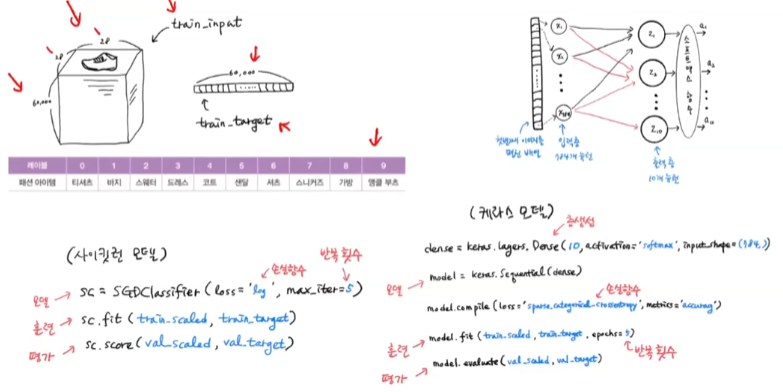 train_input
28
28
60,000
60,000
train_target
레이블 0 1 2 3 4 5 6 7 8 9
패션 아이템 티셔츠 바지 스웨터 드레스 코트 샌달 셔츠 스니커즈 가방 앵클 부츠
x1
x2
x784
z1
z2
z10
소프트맥스 함수
a1
a2
a10
첫번째 이미지를
펼친 배열
입력층
784개 뉴런
출력층
10개 뉴런
(사이킷런 모델)
손실함수
반복 횟수
모델 → sc = SGDClassifier (loss='log', max_iter=5)
훈련 → sc.fit (train_scaled, train_target)
평가 → sc.score (val_scaled, val_target)
(케라스 모델)
층생성
dense = keras.layers.Dense (10, activation='softmax', input_shape=(784,))
모델 → model = keras.Sequential (dense)
손실함수
model.compile (loss='sparse_categorical_crossentropy', metrics='accuracy')
훈련 → model.fit (train_scaled, train_target, epochs=5)
반복 횟수
평가 → model.evaluate (val_scaled, val_target)